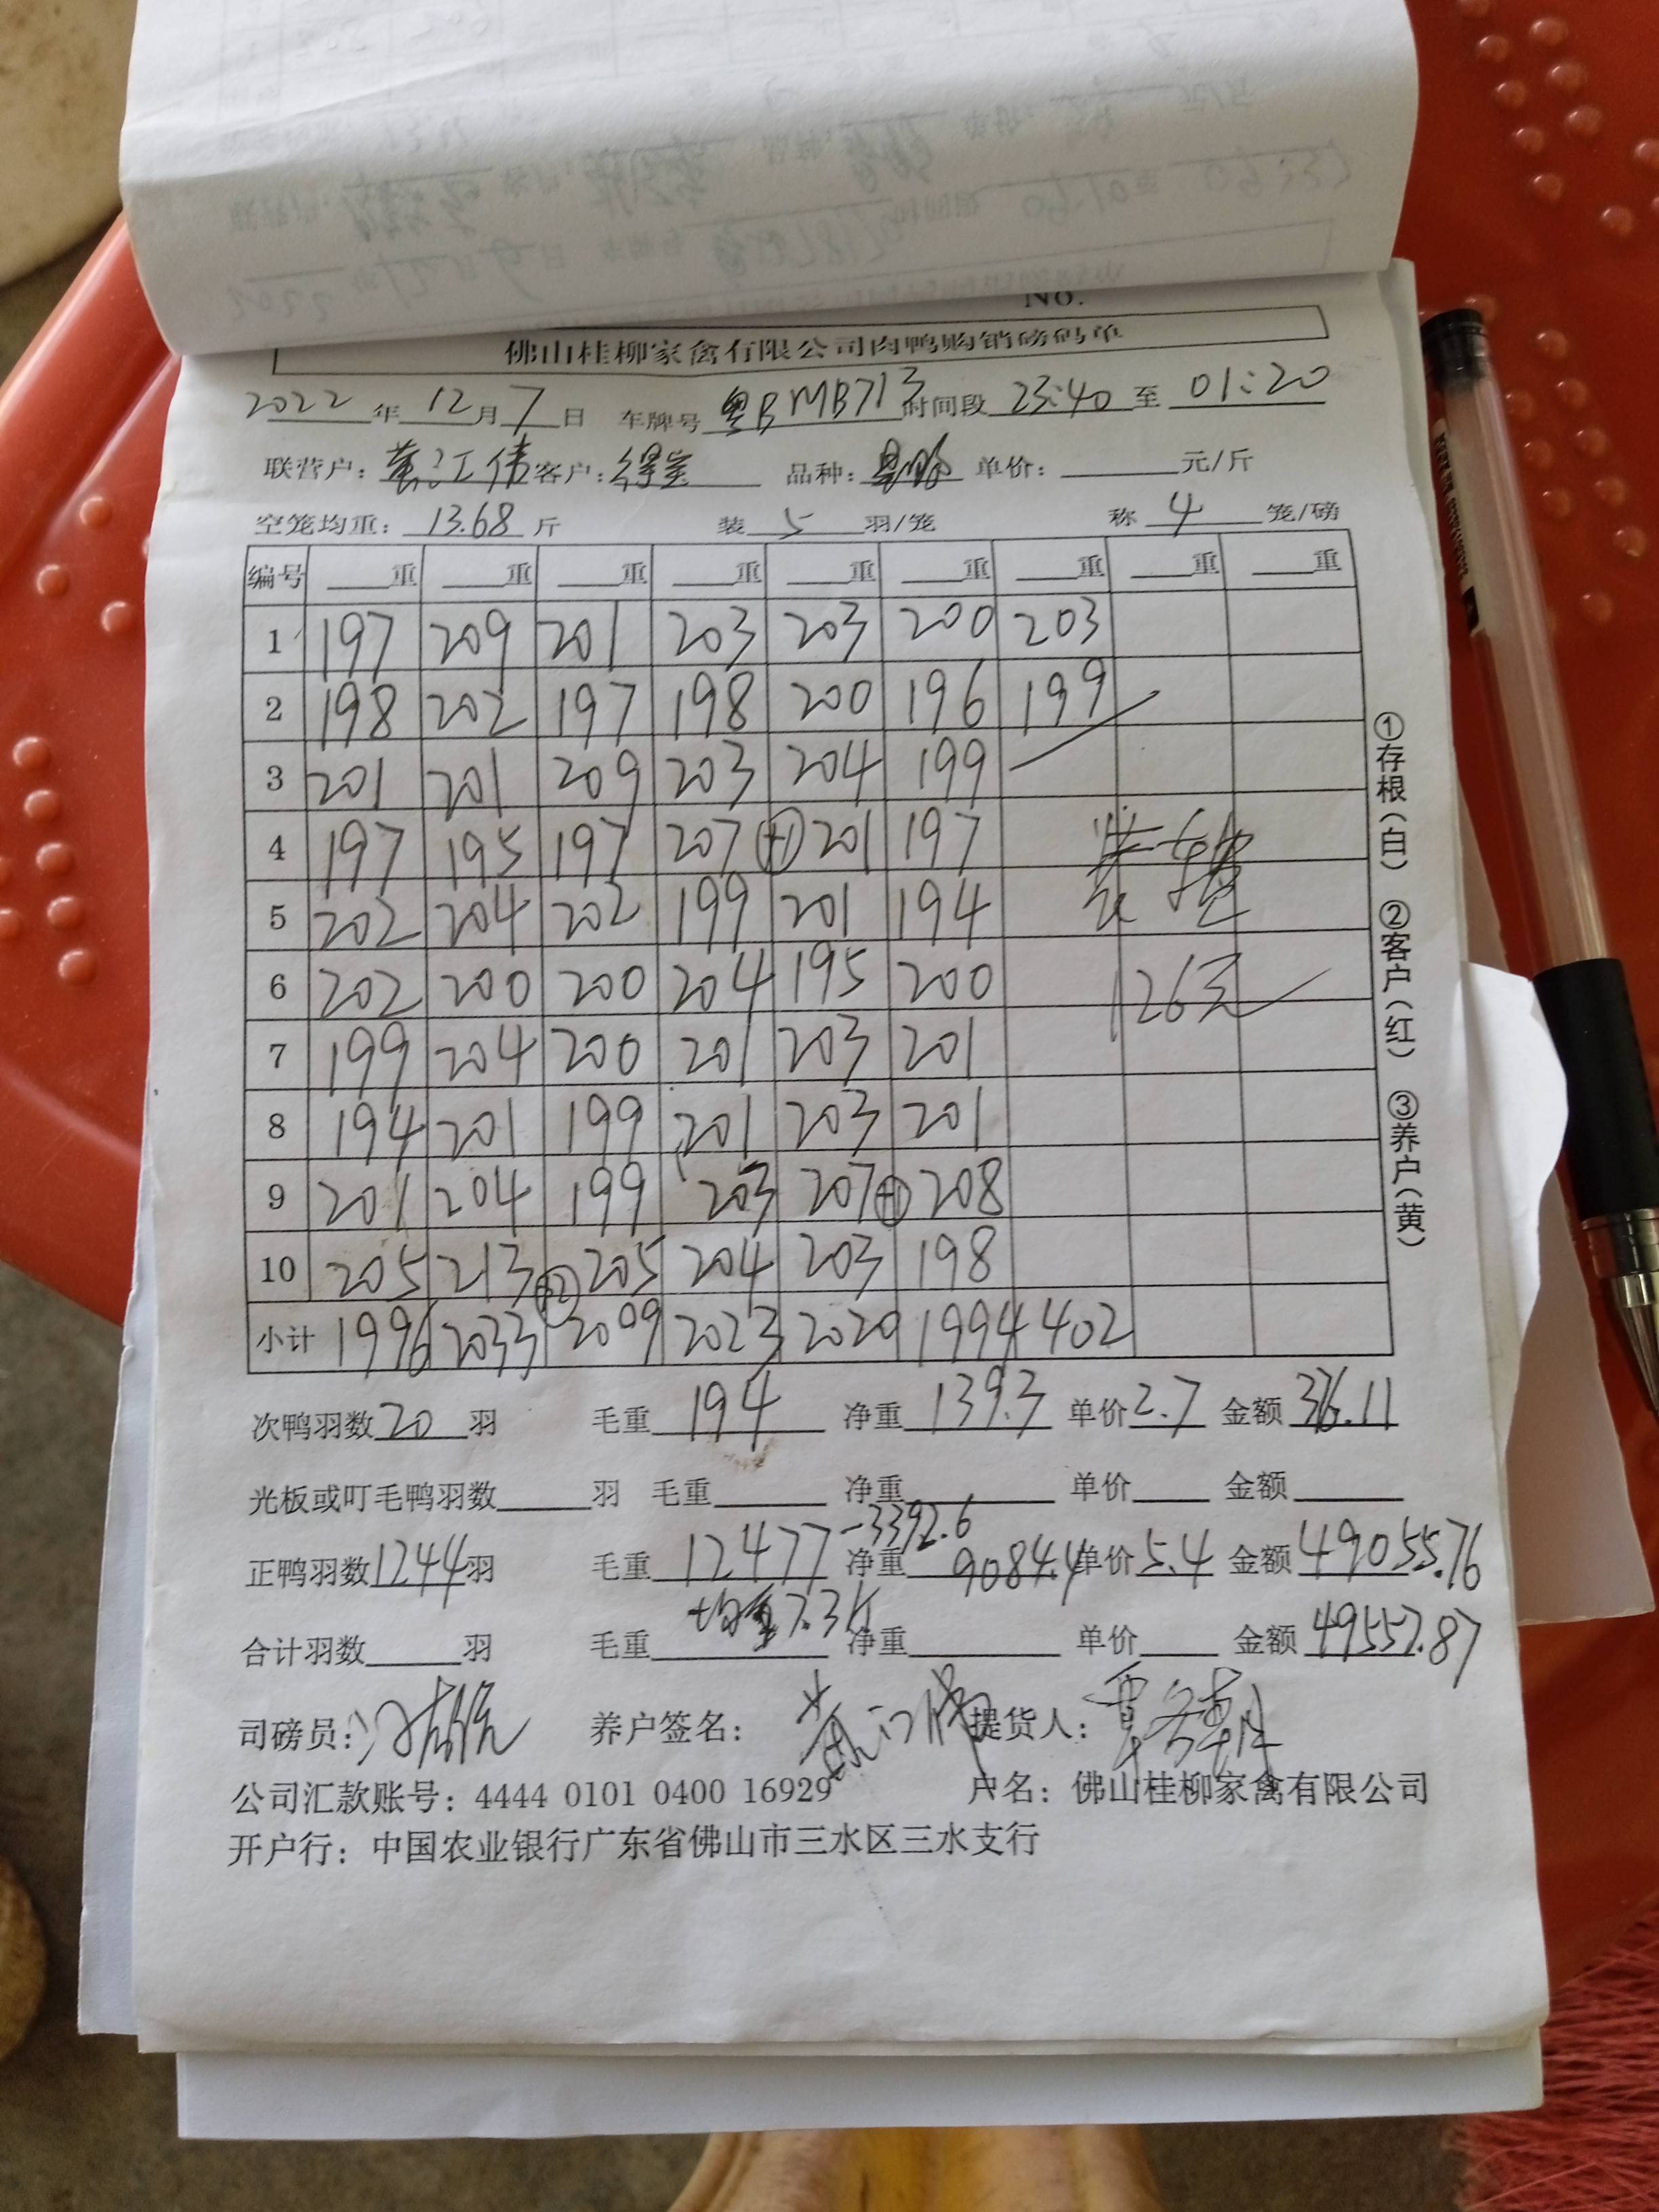 No.
佛山桂柳家禽有限公司肉鸭购销磅码单
2022年12月7日 车牌号 粤BMB713 时间段 23:40 至 01:20
联营户：黄江伟 客户：得宝 品种： 单价： 元/斤
空笼均重：13.68斤 装 5 羽/笼 称 4 笼/磅
编号 重 重 重 重 重 重 重 重 重
1 197 209 201 203 203 200 203
2 198 202 197 198 200 196 199
3 201 201 209 203 204 199
4 197 195 197 207 (+1) 201 197
5 202 204 202 199 201 194
6 202 200 200 204 195 200 126元
7 199 204 200 201 203 201
8 194 201 199 201 203 201
9 201 204 199 203 207 (+1) 208
10 205 213 (+2) 205 204 203 198
小计 1996 2033 2009 2023 2020 1994 402
次鸭羽数 20 羽 毛重 194 净重 139.3 单价 2.7 金额 376.11
光板或叮毛鸭羽数 羽 毛重 净重 单价 金额
-3392.6
正鸭羽数 1244 羽 毛重 12477 净重 9084.4 单价 5.4 金额 49055.76
均重7.3斤
合计羽数 羽 毛重 净重 单价 金额 49557.87
司磅员： 养户签名：黄江伟 提货人：
公司汇款账号：4444 0101 0400 16929 户名：佛山桂柳家禽有限公司
开户行：中国农业银行广东省佛山市三水区三水支行
①存根（白） ②客户（红） ③养户（黄）